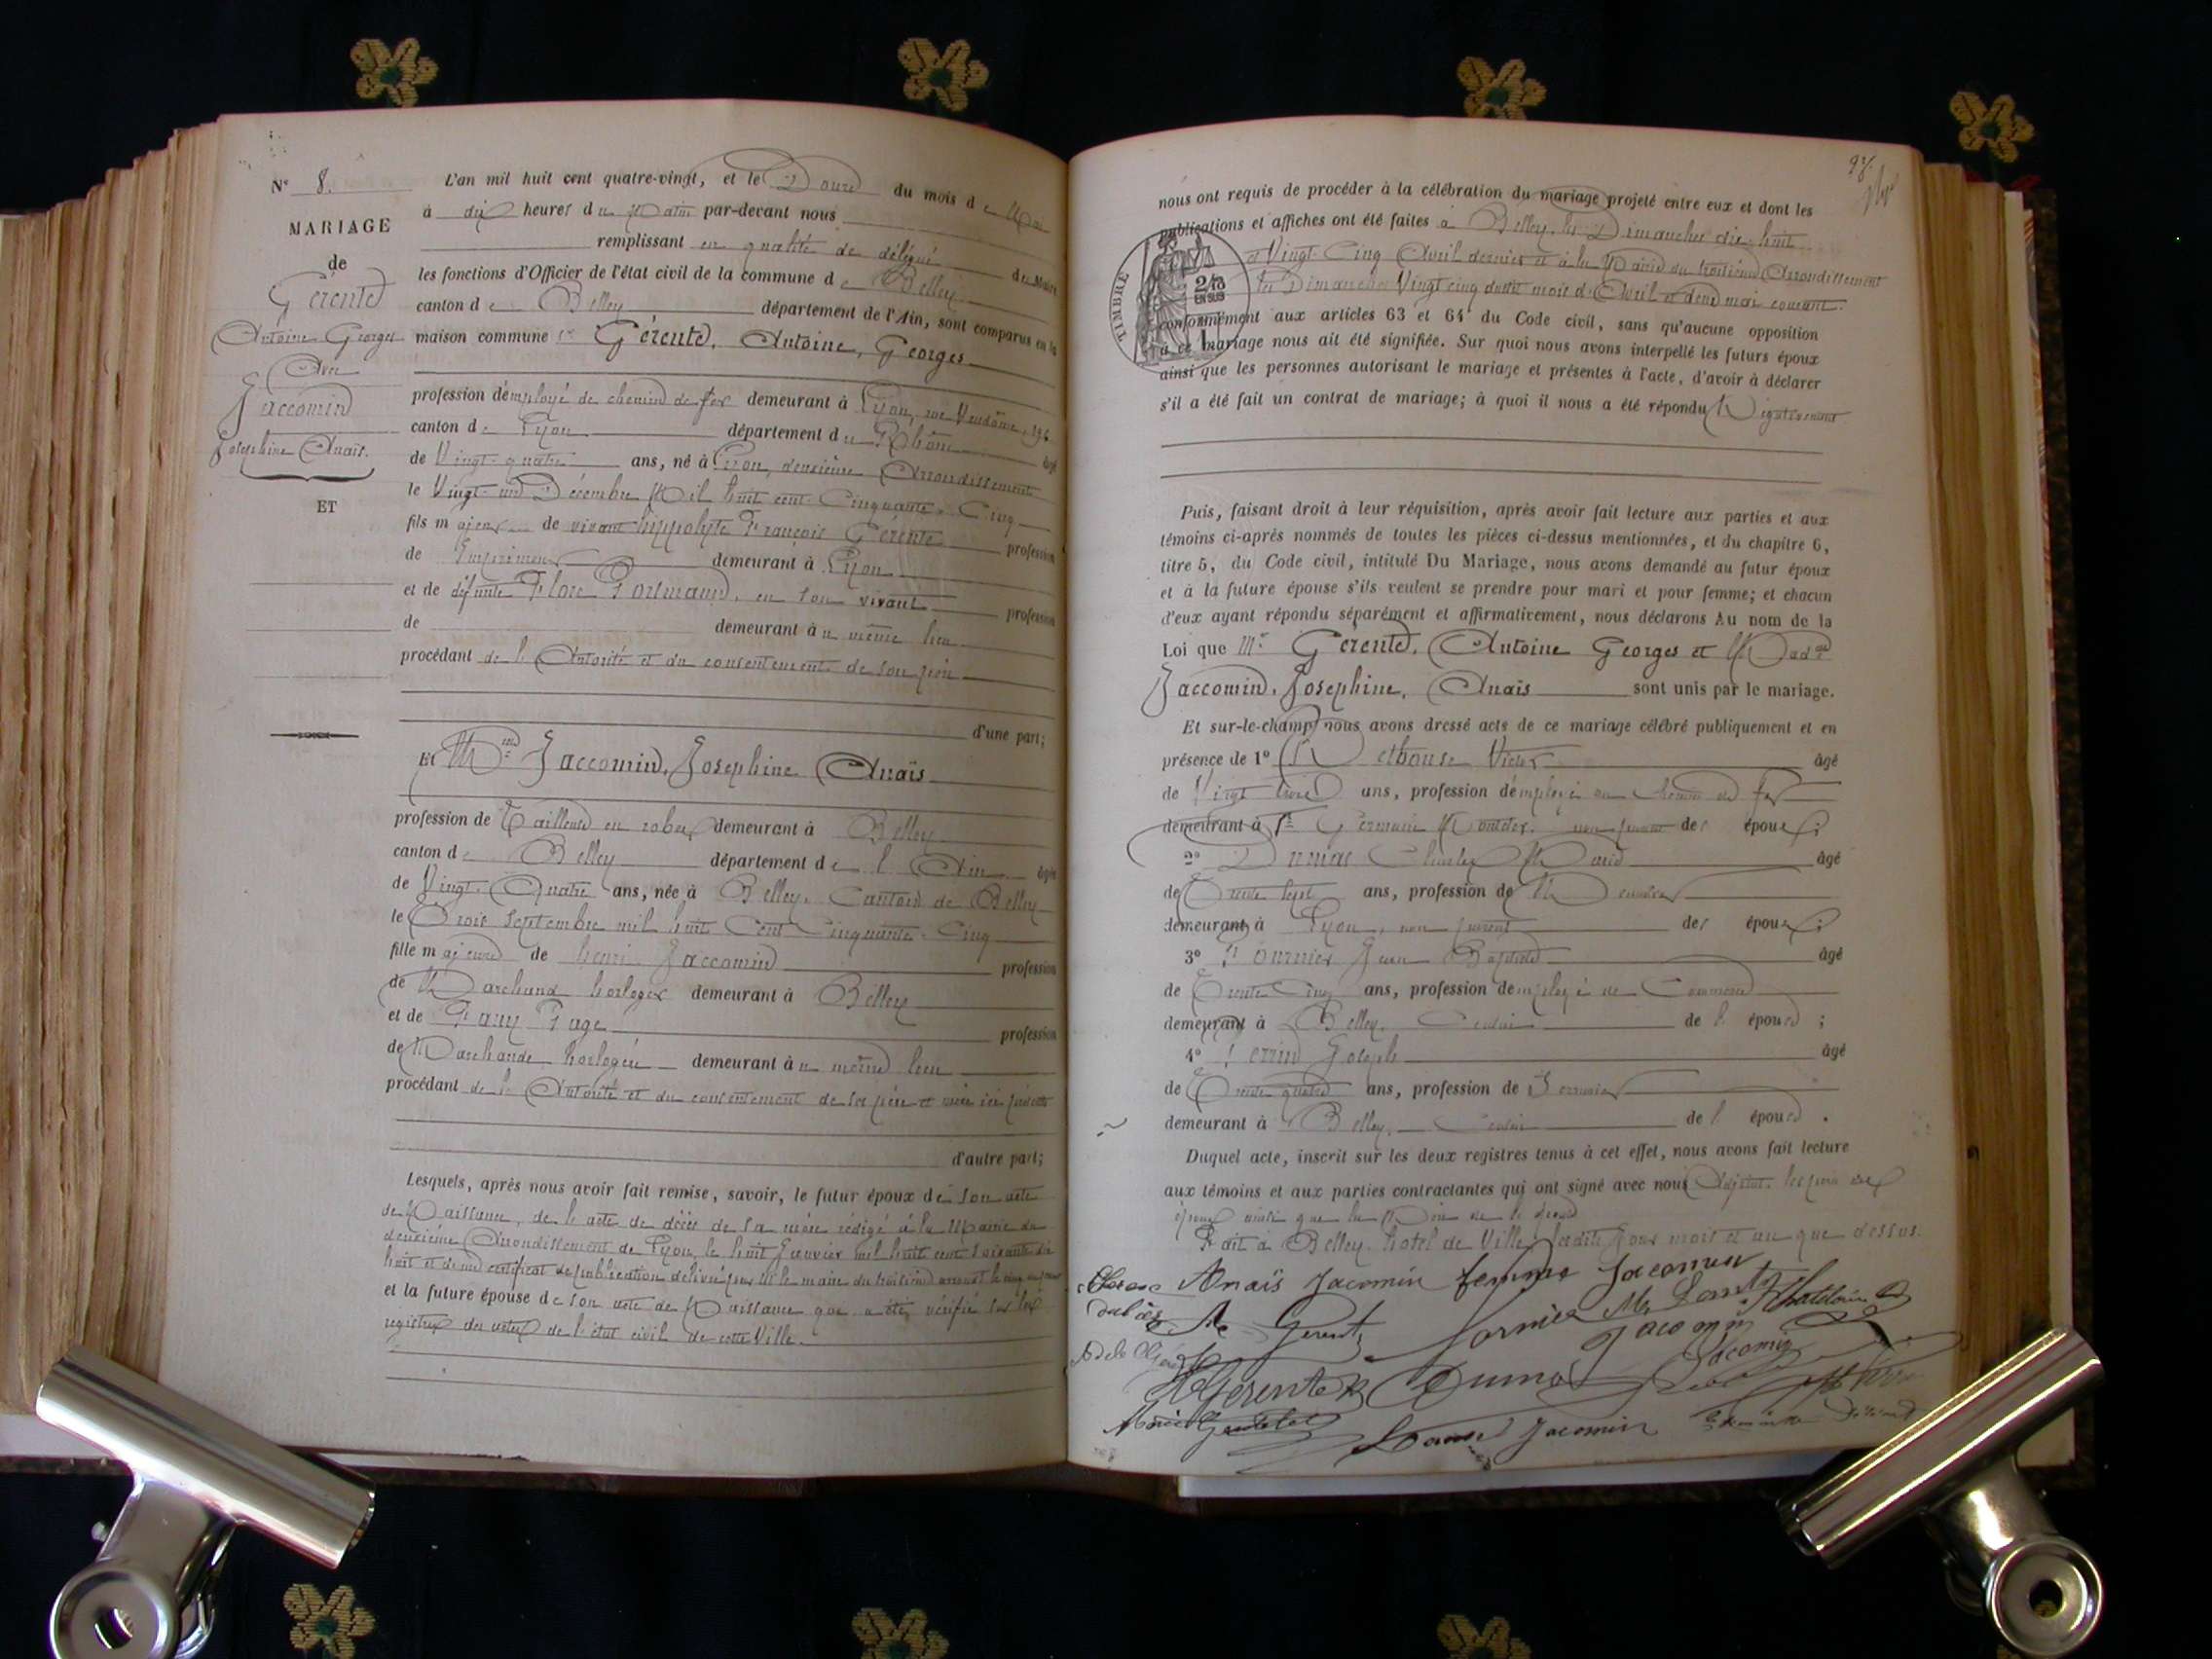 N° 8.
MARIAGE
de
Gérente
Antoine Georges
Avec
Jaccomin
Josephine Anaïs.
ET
L'an mil huit cent quatre-vingt, et le Douze du mois de Mai
à dix heures du Matin par-devant nous
remplissant en qualité de délégué du Maire
les fonctions d'Officier de l'état civil de la commune de Belley
canton de Belley département de l'Ain, sont comparus en la
maison commune Sr Gérente, Antoine, Georges
profession d'employé de chemin de fer demeurant à Lyon, rue Vendôme, 196
canton de Lyon département du Rhône âgé
de Vingt-quatre ans, né à Lyon, deuxième Arrondissement
le Vingt-un Décembre Mil huit cent Cinquante-Cinq
fils majeur de vivant hippolyte François Gérente profession
de Imprimeur demeurant à Lyon
et de défunte Flore Portmann, en son vivant profession
de demeurant au même lieu
procédant de l'Autorité et du consentement de son père
d'une part;
Et Mlle Jaccomin, Josephine Anaïs
profession de Tailleuse en robes demeurant à Belley
canton de Belley département de l'Ain âgée
de Vingt-Quatre ans, née à Belley, Canton de Belley
le Trois Septembre mil huit Cent Cinquante-Cinq
fille majeure de henri Jaccomin profession
de Marchand horloger demeurant à Belley
et de Fany Page profession
de Marchande horlogère demeurant au même lieu
procédant de l'Autorité et du consentement de ses père et mère ici présents
d'autre part;
Lesquels, après nous avoir fait remise, savoir, le futur époux de son acte
de Naissance, de l'acte de décès de sa mère rédigé à la Mairie du
deuxième Arrondissement de Lyon, le huit Janvier mil huit cent soixante dix
huit et d'un certificat de publication délivré par M. le maire du troisième arrondt
et la future épouse de son acte de Naissance que a été vérifié sur les
registres des actes de l'état civil de cette Ville.
97.
nous ont requis de procéder à la célébration du mariage projeté entre eux et dont les
publications et affiches ont été faites à Belley, les Dimanches dix-huit
et Vingt-Cinq Avril dernier et à la Mairie du troisième Arrondissement
les Dimanches Vingt cinq dudit mois d'Avril et deux mai courant.
TIMBRE
2/10
EN SUS
conformément aux articles 63 et 64 du Code civil, sans qu'aucune opposition
à ce mariage nous ait été signifiée. Sur quoi nous avons interpellé les futurs époux
ainsi que les personnes autorisant le mariage et présentes à l'acte, d'avoir à déclarer
s'il a été fait un contrat de mariage; à quoi il nous a été répondu Négativement
Puis, faisant droit à leur réquisition, après avoir fait lecture aux parties et aux
témoins ci-après nommés de toutes les pièces ci-dessus mentionnées, et du chapitre 6,
titre 5, du Code civil, intitulé Du Mariage, nous avons demandé au futur époux
et à la future épouse s'ils veulent se prendre pour mari et pour femme; et chacun
d'eux ayant répondu séparément et affirmativement, nous déclarons Au nom de la
Loi que Mr Gérente, Antoine Georges et Mad
Jaccomin, Josephine, Anaïs sont unis par le mariage.
Et sur-le-champ nous avons dressé acte de ce mariage célébré publiquement et en
présence de 1° Victor âgé
de Vingt trois ans, profession d'employé au chemin de fer
demeurant à St Germain non parent des époux;
2° Dumas Charles âgé
de Trente sept ans, profession de
demeurant à Lyon, non parent des époux;
3° Fournier Jean Baptiste âgé
de Trente Cinq ans, profession d'employé de Commerce
demeurant à Belley, Cousin de l'épouse;
4° Perrin Joseph âgé
de Trente quatre ans, profession de Serrurier
demeurant à Belley, Cousin de l'épouse.
Duquel acte, inscrit sur les deux registres tenus à cet effet, nous avons fait lecture
aux témoins et aux parties contractantes qui ont signé avec nous Adjoint. les père des
époux ainsi que la Mère de l'épouse
Fait à Belley, hotel de Ville, ledits Jour mois et an que dessus.
Anaïs Jacomin femme Jacomin
Gerente Jacomin
Jacomin
Gerente Dumas
Jacomin